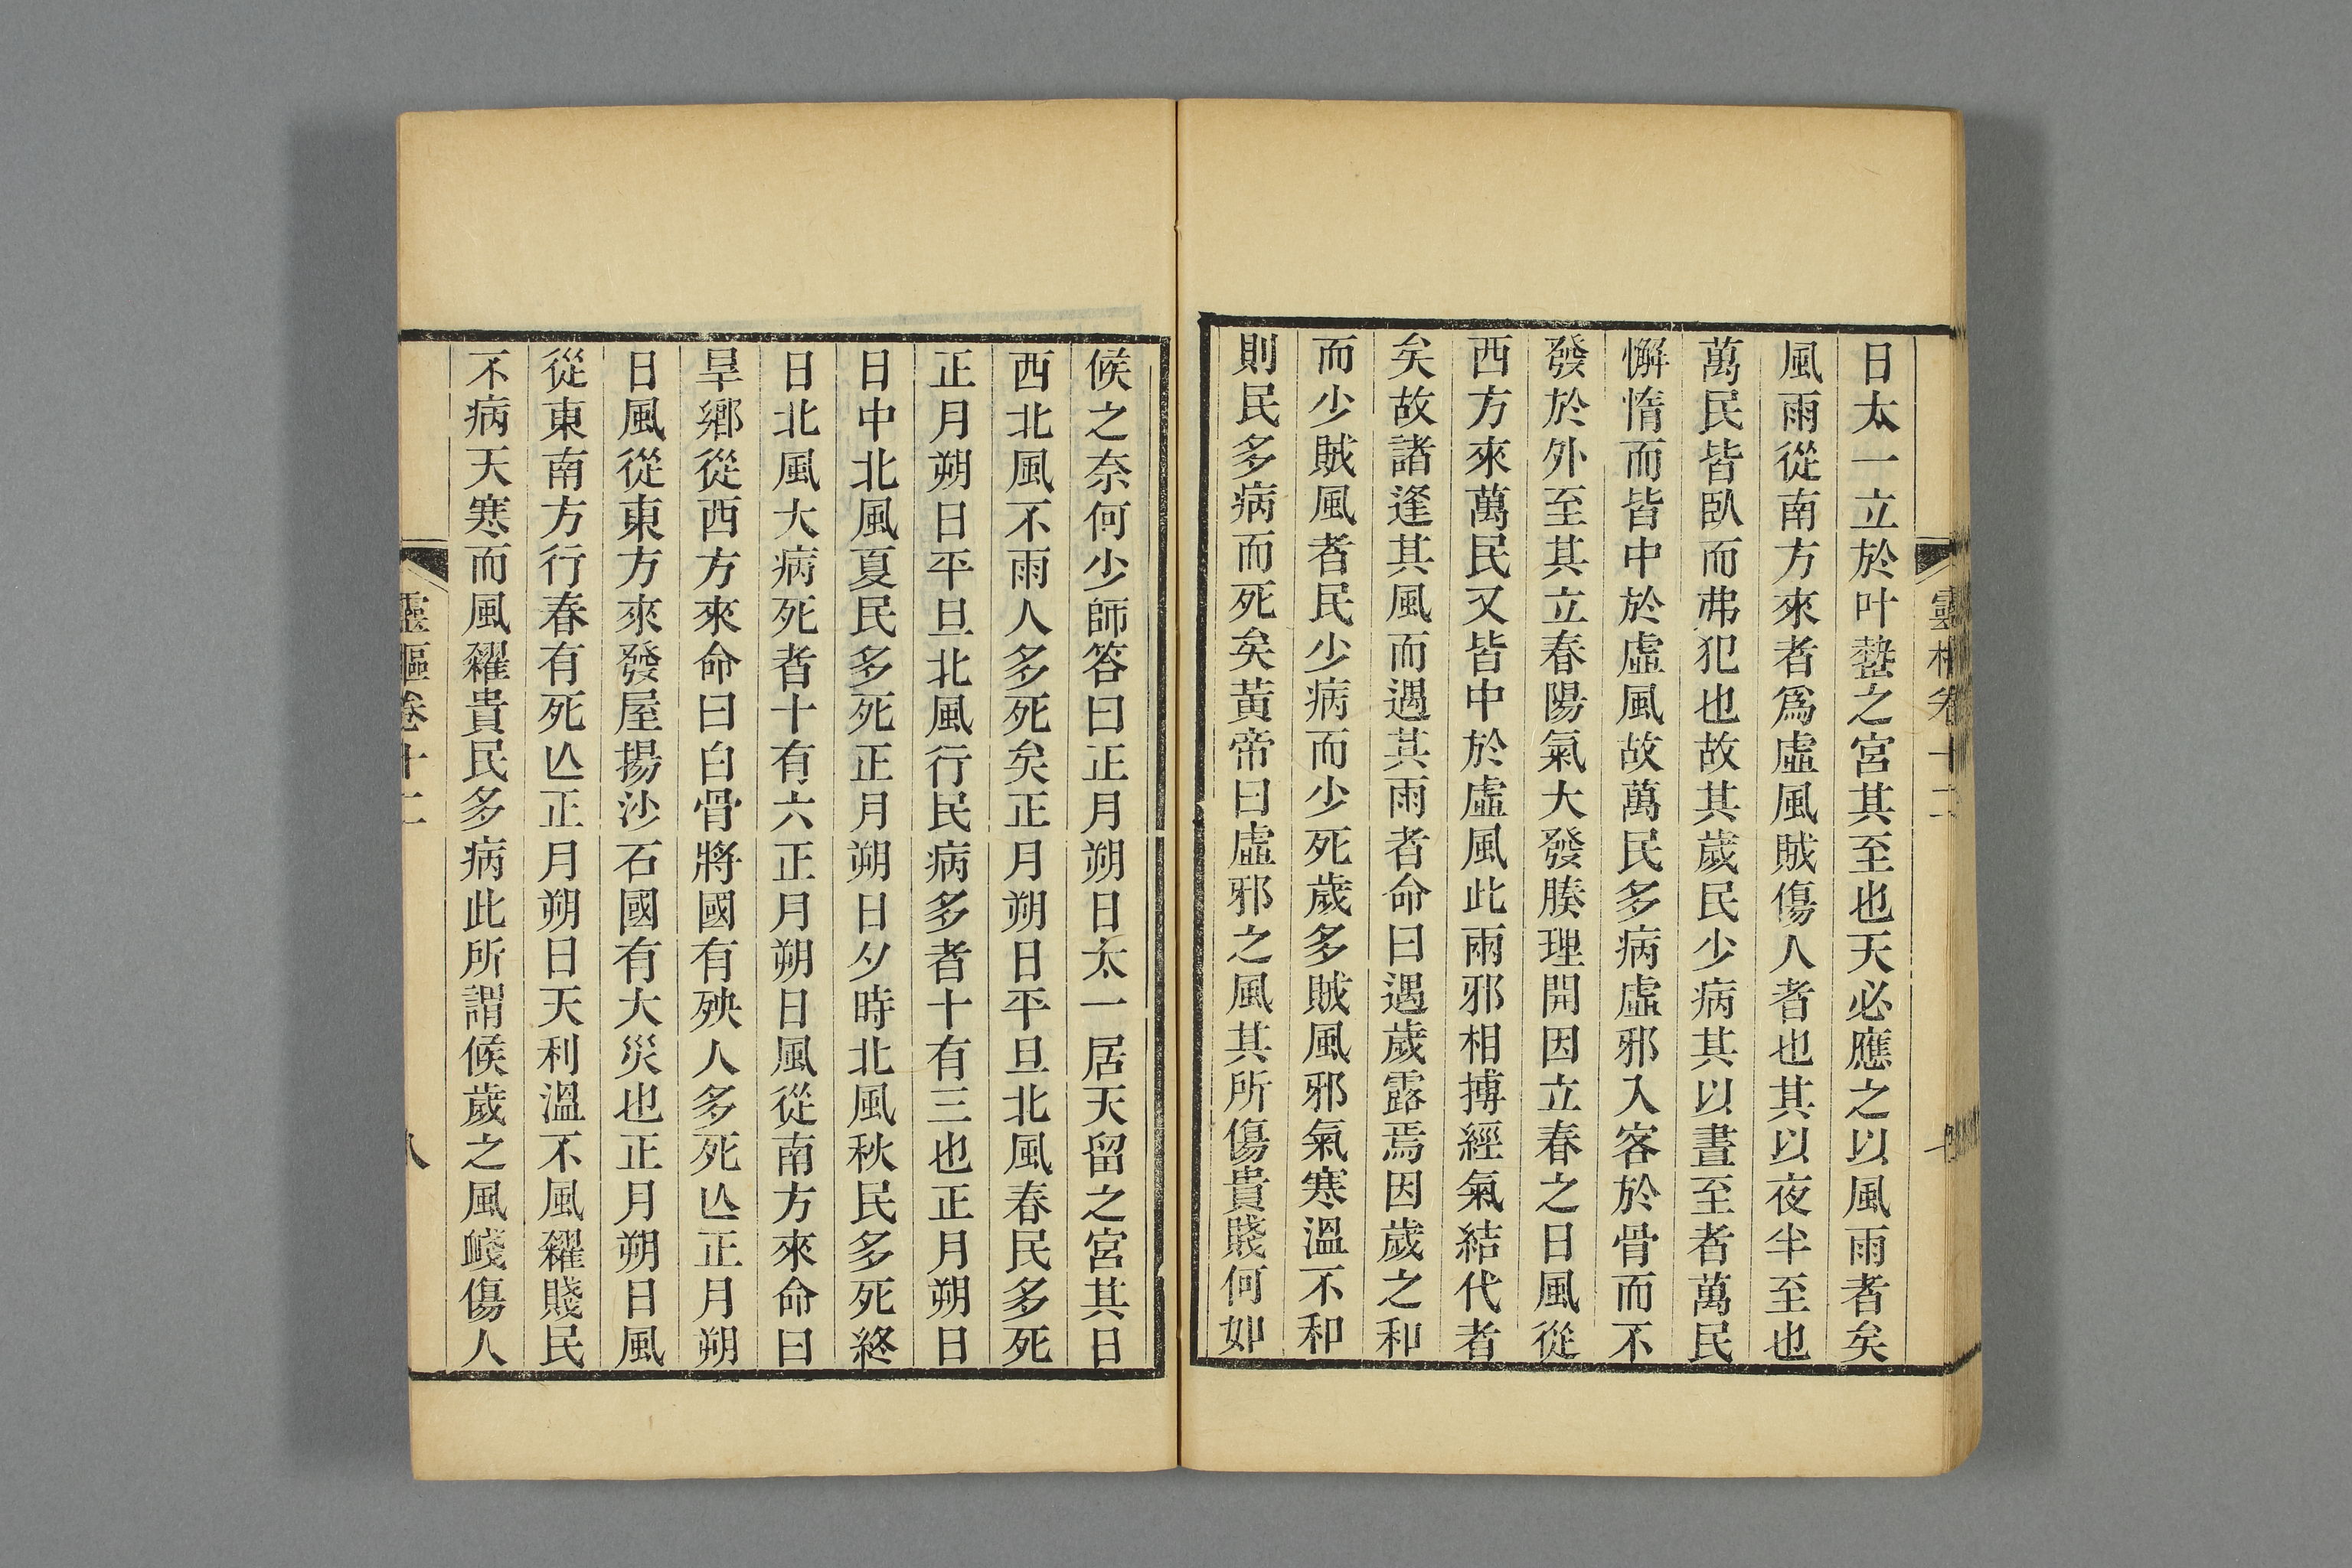 靈樞卷十二
日太一立於叶蟄之宮其至也天必應之以風雨者矣
風雨從南方來者爲虛風賊傷人者也其以夜半至也
萬民皆臥而弗犯也故其歲民少病其以晝至者萬民
懈惰而皆中於虛風故萬民多病虛邪入客於骨而不
發於外至其立春陽氣大發腠理開因立春之日風從
西方來萬民又皆中於虛風此兩邪相搏經氣結代者
矣故諸逢其風而遇其雨者命曰遇歲露焉因歲之和
而少賊風者民少病而少死歲多賊風邪氣寒溫不和
則民多病而死矣黃帝曰虛邪之風其所傷貴賤何如
候之奈何少師答曰正月朔日太一居天留之宮其日
西北風不雨人多死矣正月朔日平旦北風春民多死
正月朔日平旦北風行民病多者十有三也正月朔日
日中北風夏民多死正月朔日夕時北風秋民多死終
日北風大病死者十有六正月朔日風從南方來命曰
旱鄉從西方來命曰白骨將國有殃人多死亾正月朔
日風從東方來發屋揚沙石國有大災也正月朔日風
從東南方行春有死亾正月朔日天利溫不風糴賤民
不病天寒而風糴貴民多病此所謂候歲之風𡺄傷人
靈樞卷十二
八